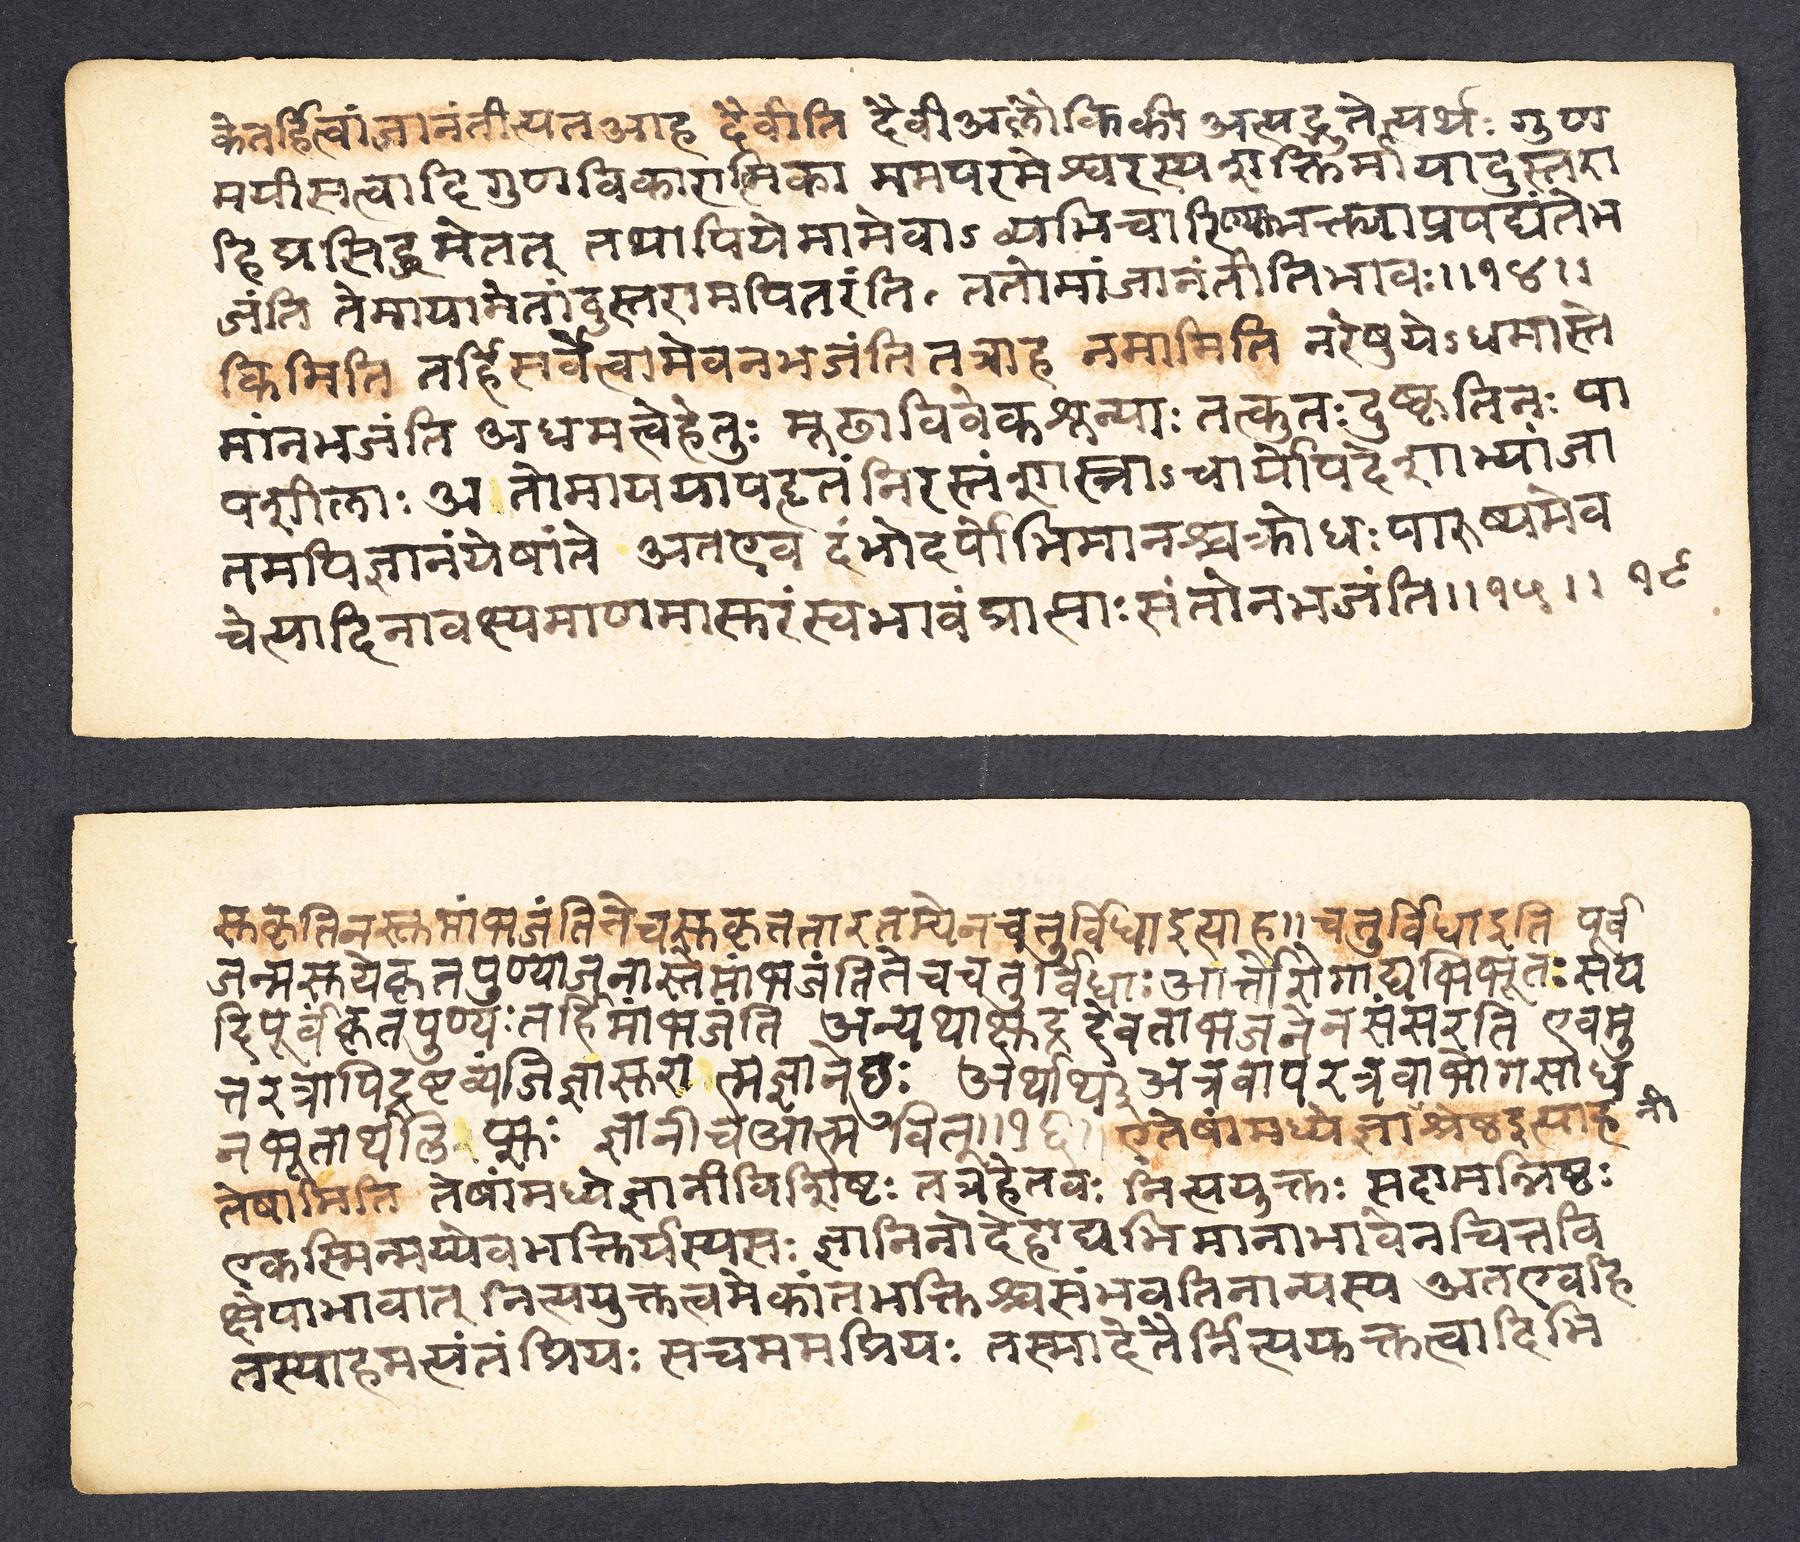 केतर्हित्वांजानंतीत्यतआह दैवीति दैवीअलौकिकी अत्यद्भुतेत्यर्थः गुण
मयीसत्वादिगुणविकारात्मिका ममपरमेश्वरस्यशक्तिर्मायादुस्तरा
हि प्रसिद्धमेतत् तथापियेमामेवाऽव्यभिचारिण्याभक्त्याप्रपद्यंतेभ
जंति तेमायामेतांदुस्तरामपितरंति ततोमांजानंतीतिभावः।।१४।।
किमिति तर्हिसर्वेत्वामेवनभजंतितत्राह नमामिति नरेषुयेऽधमास्ते
मांनभजंति अधमत्वेहेतुः मूढाविवेकशून्याः तत्कुतःदुष्कृतिनः पा
पशीलाः अतोमाययापहृतंनिरस्तंशास्त्राऽचार्योपदेशाभ्यांजा
तमपिज्ञानंयेषांते अतएव दंभोदर्पोभिमानश्चक्रोधःपारुष्यमेव
चेत्यादिनावक्ष्यमाणमासुरंस्वभावंप्राप्ताःसंतोनभजंति।।१५।। १९
सुकृतिनस्तुमांभजंतितेचसुकृततारतम्येनचतुर्विधाइत्याह।।चतुर्विधाइति पूर्व
जन्मसुयेकृतपुण्याजनास्तेमांभजंतितेचचतुर्विधाः आर्त्तोरोगाद्यभिभूतः सय
दिपूर्वंकृतपुण्यःतर्हिमांभजति अन्यथाक्षुद्रदेवताभजनेनसंसरति एवमु
त्तरत्रापिद्रष्टव्यंजिज्ञासुरात्मज्ञानेछुः अर्थार्थी अत्रवापरत्रवाभोगसाध
नभूतार्थलिप्सुः ज्ञानीचआत्मवित्।।१६।। एतेषांमध्येज्ञाश्रेष्ठइत्याह नी
तेषामिति तेषांमध्येज्ञानीविशिष्टः तत्रहेतवः नित्ययुक्तः सदामन्निष्ठः
एकस्मिन्मय्येवभक्तिर्यस्यसः ज्ञानिनोदेहाद्यभिमानाभावेनचित्तवि
क्षेपाभावात् नित्ययुक्तत्वमेकांतभक्तिश्चसंभवतिनान्यस्य अतएवहि
तस्याहमत्यंतंप्रियः सचममप्रियः तस्मादेतैर्नित्ययुक्तत्वादिभि